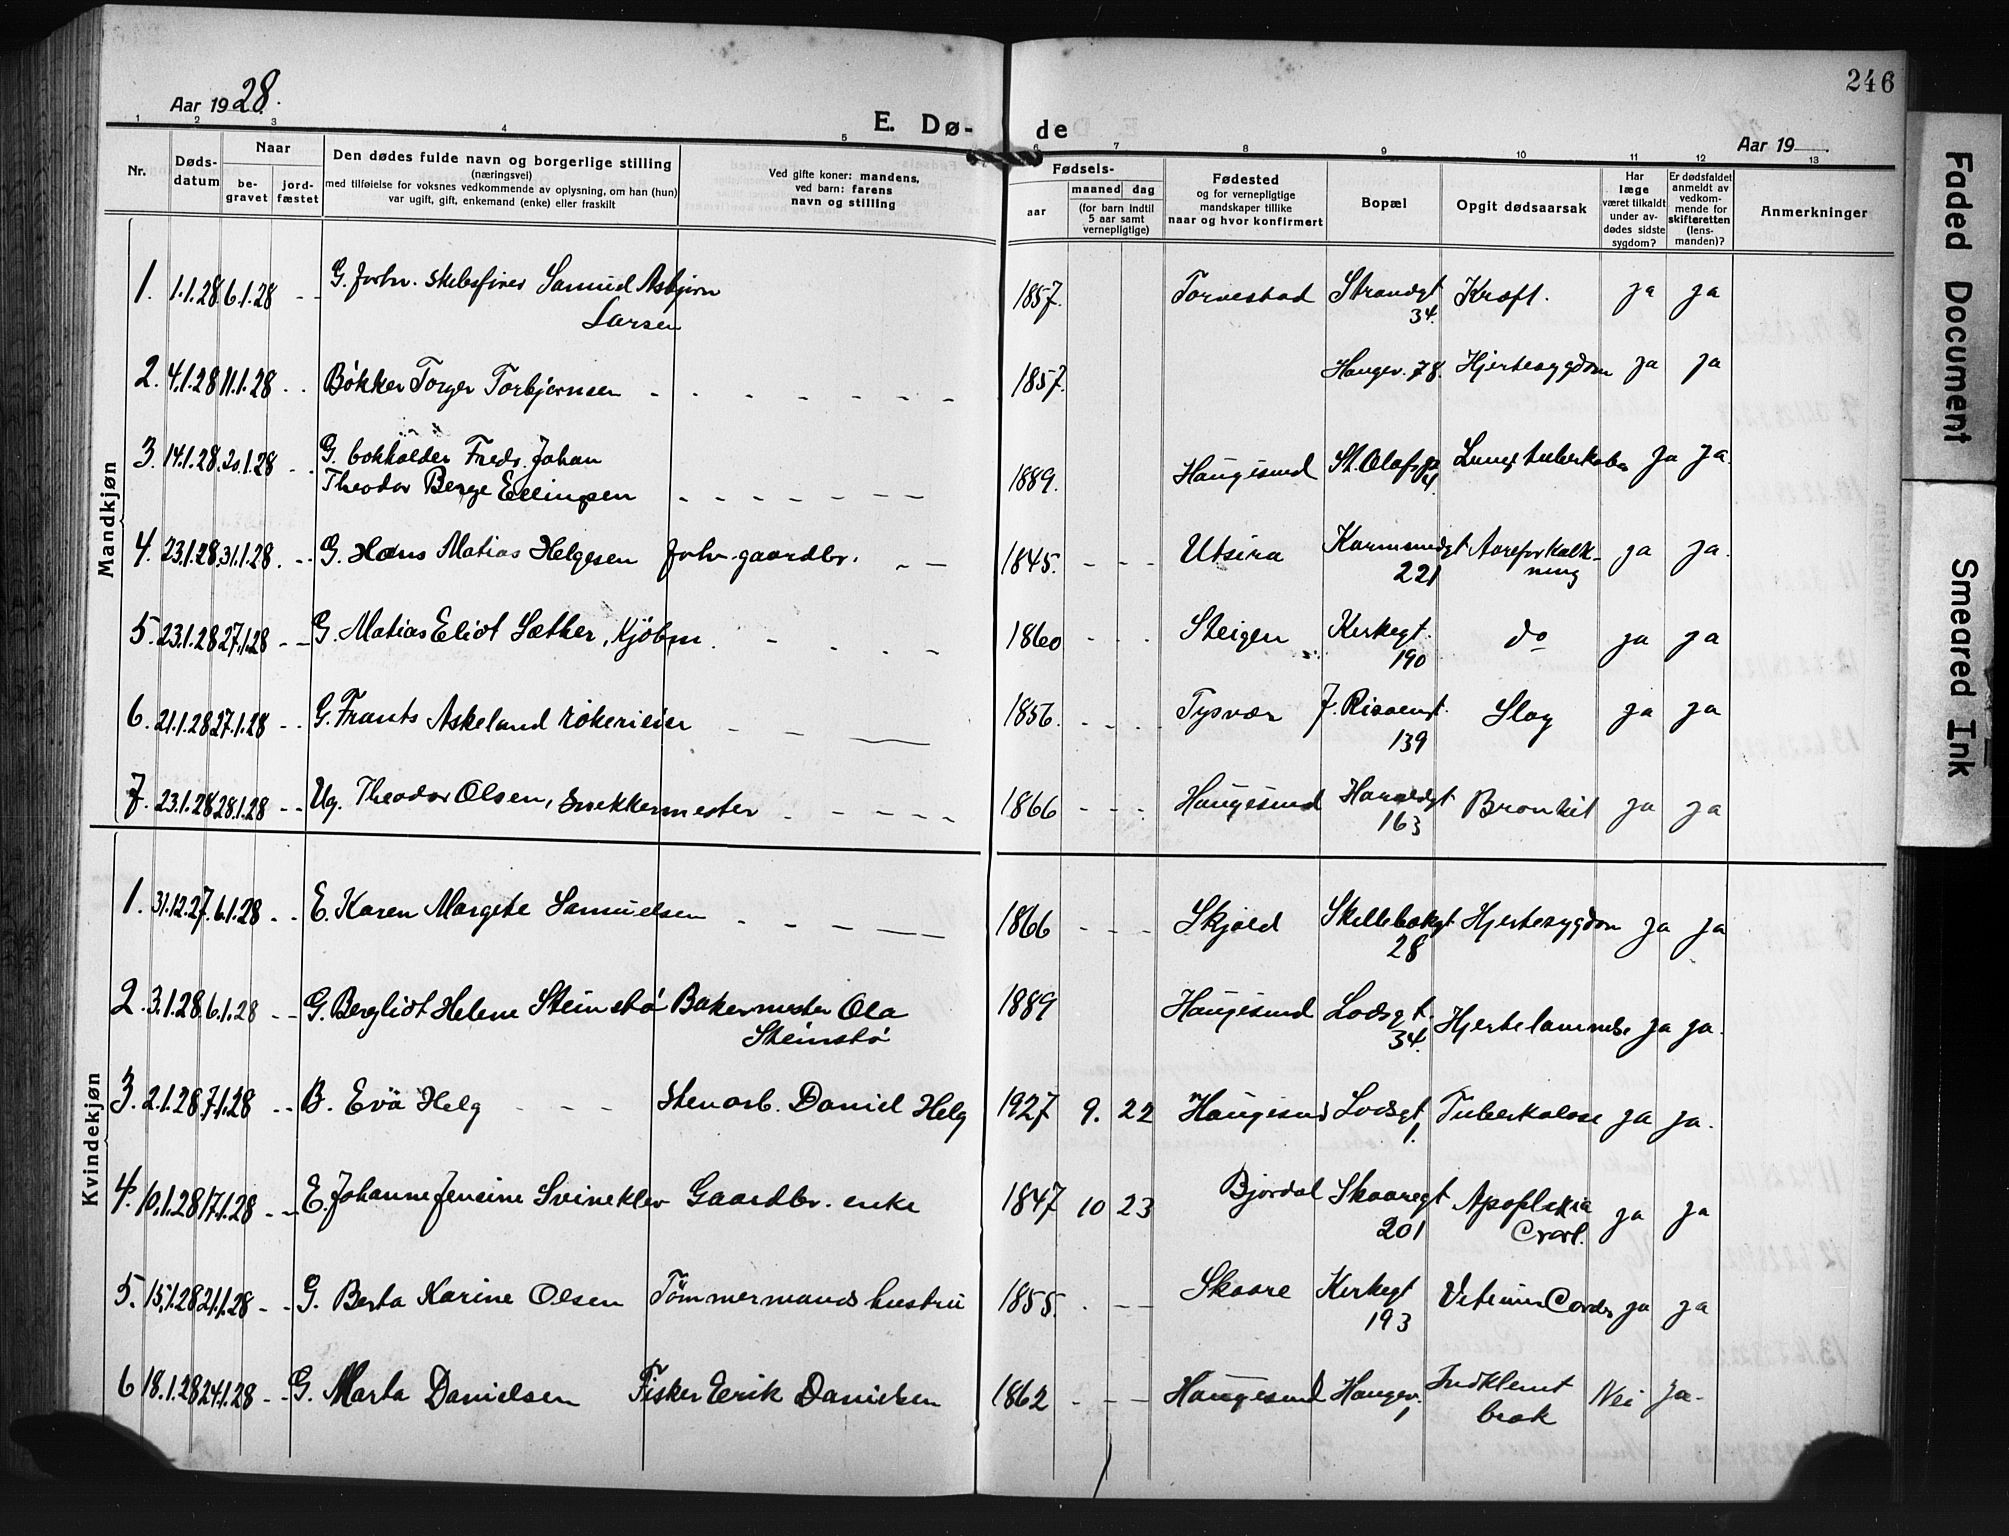 246
Aar 1928.
E. Dø-de
Aar 19
1 2 3 4 5 6 7 8 9 10 11 12 13
Nr.
Døds-datum
Naar
be-gravet
jord-fæstet
Den dødes fulde navn og borgerlige stilling
(næringsvei)
med tilføielse for voksnes vedkommende av oplysning, om han (hun)
var ugift, gift, enkemand (enke) eller fraskilt
Ved gifte koner: mandens,
ved barn: farens
navn og stilling
Fødsels-
aar
maaned dag
(for barn indtil
5 aar samt
vernepligtige)
Fødested
og for vernepligtige
mandskaper tillike
naar og hvor konfirmert
Bopæl
Opgit dødsaarsak
Har
læge
været tilkaldt
under av-
dødes sidste
sygdom?
Er dødsfaldet
anmeldt av
vedkom-
mende for
skifteretten
(lens-
manden)?
Anmerkninger
Mandkjøn
1. 1.1.28 6.1.28 - - G. forhv. skibsfører Samuel Asbjørn Larsen 1857. Torvestad Strandgt 34. Kræft. ja ja
2. 4.1.28 11.1.28 - - Bøkker Torger Torbjørnsen - - - - - - 1857. Haugev. 78. Hjertesygdom ja ja
3. 14.1.28 20.1.28 - - G. bokholder Fredr. Johan Theodor Berge Ellingsen - - - - - - 1889. Haugesund St. Olafsgt Lungetuberkulos ja ja.
4. 23.1.28 31.1.28 - - G. Hans Matias Helgesen forhv. gaardbr. - - 1845. - - - Utsira Karmsundgt 221 Aareforkalk-ning ja ja.
5. 23.1.28 27.1.28 - - G. Matias Eliot Sæther, Kjøbm. - - - - 1860 - - - Steigen Kirkegt. 190 do ja ja
6. 21.1.28 27.1.28 - - G. Frants Askeland røkerieier - - - 1856. - - - Tysvær J. Risøengt. 139 Slag ja ja
7. 23.1.28 28.1.28 - - Ug. Theodor Olsen, snekkermester - - - - 1866 - - - Haugesund Haraldgt 163 Bronkit ja ja
Kvindekjøn
1. 31.12.27. 6.1.28 - - E. Karen Margite Samuelsen - - - - 1866 - - - Skjold Skillebekgt 28 Hjertesygdom ja ja
2. 3.1.28. 6.1.28 - - G. Bergliot Helene Steinstø Bakermester Ola Steinstø 1889 Haugesund Lodsgt. 34. Hjertelammelse ja ja.
3. 2.1.28 7.1.28 - - B. Eva Helg - - - Stenarb. Daniel Helg 1927 9. 22 Haugesund Lodsgt 1. Tuberkulose ja ja.
4. 10.1.28 17.1.28 - - E. Johanne Jensine Svineklev Gaardbr. enke 1847 10 23 Bjordal Skaaregt 201 Apoplexia Crerl. ja ja
5. 15.1.28 21.1.28 - - G. Berta Karine Olsen Tømmermands hustru 1855. - - - Skaare Kirkegt 193 Vitium Cordis ja ja
6 18.1.28 24.1.28 - - G. Marta Danielsen Fisker Eerik Danielsen 1862 - - - Haugesund Haugev. 1 Indklemt brok Nei ja-
Faded Document
Smeared Ink